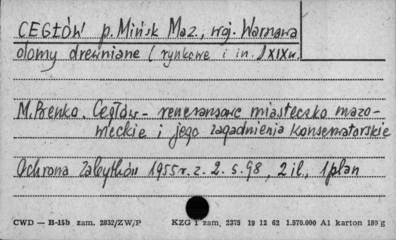 CEGŁÓW p. Mińsk Maz., woj. Warszawa
domy drewniane (rynkowe i in.) XIXw.
M. Brenko. Cegłów - renesansowe miasteczko mazo-
wieckie i jego zagadnienia konserwatorskie
Ochrona Zabytków 1955 r. z. 2. s. 98, 2 il., 1 plan
CWD — B-15b zam. 2832/ZW/P KZG 1 zam, 2375 19 12 62 1.570.000 A1 karton 180 g